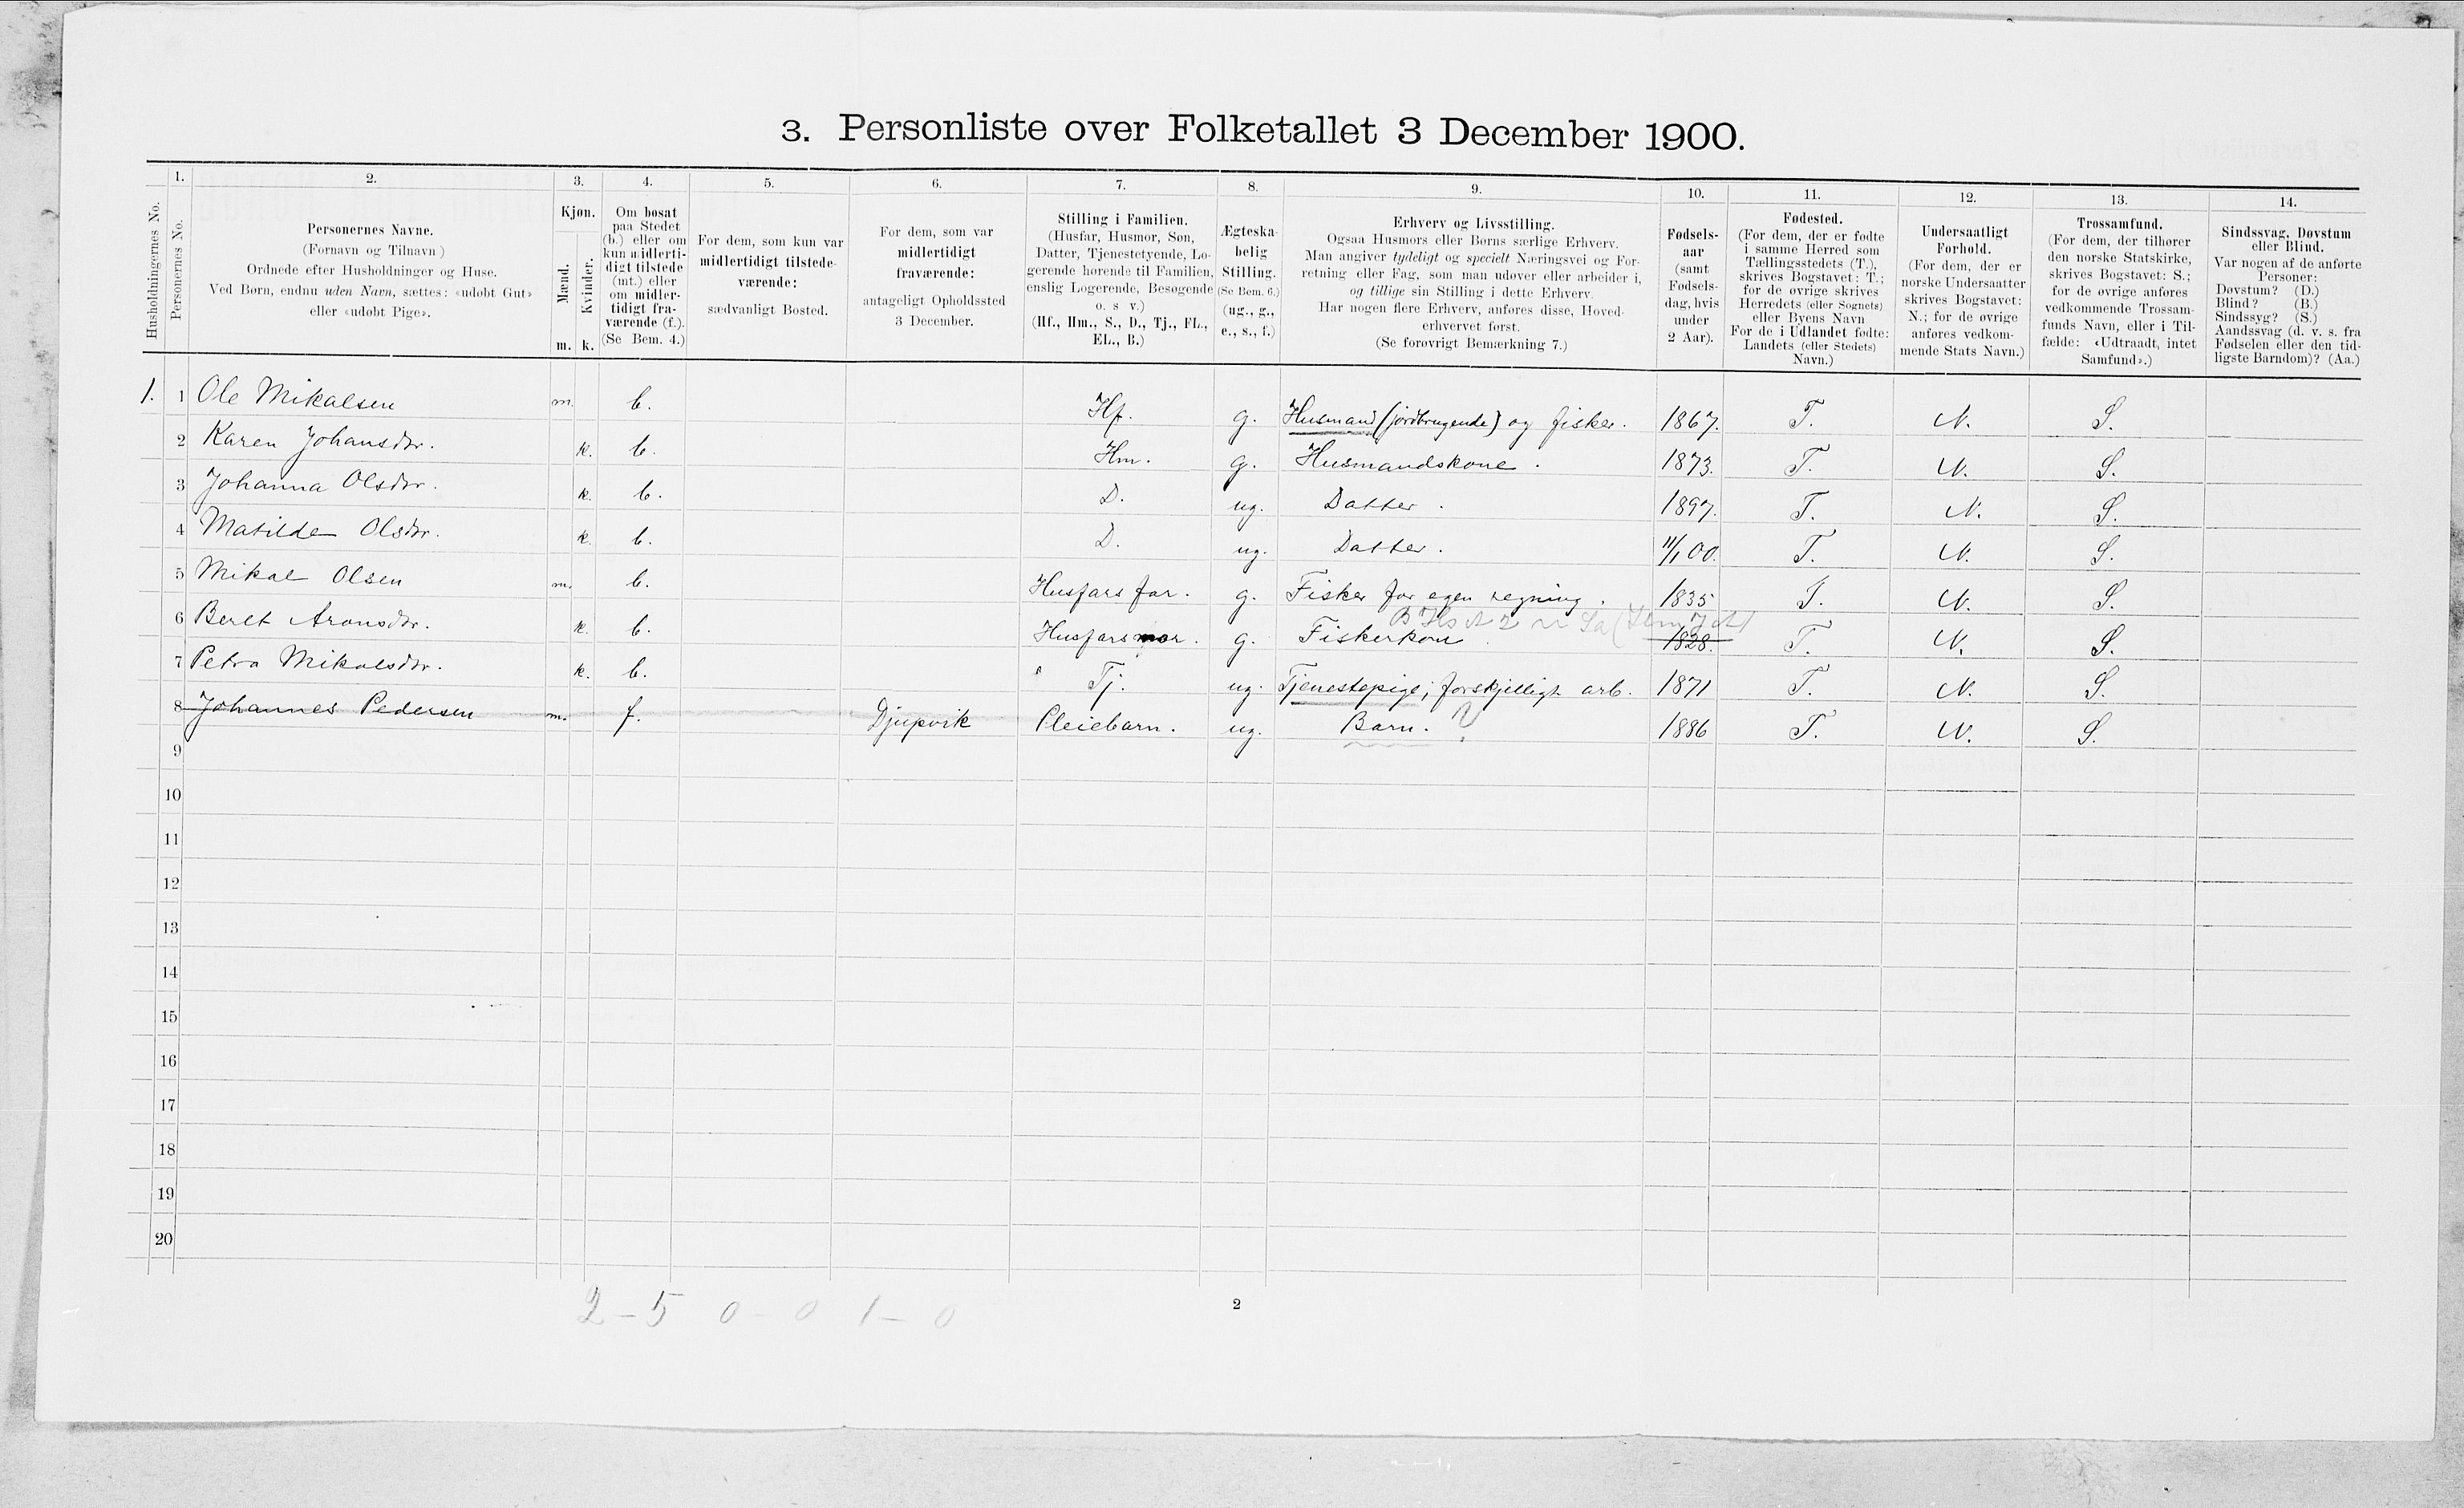 3. Personliste over Folketallet 3 December 1900.
1. 2. 3. 4. 5. 6. 7. 8. 9. 10. 11. 12. 13. 14.
Husholdningernes No.
Personernes No.
Personernes Navne.
(Fornavn og Tilnavn)
Ordnede efter Husholdninger og Huse.
Ved Børn, endnu uden Navn, sættes: «udøbt Gut»
eller «udøbt Pige».
Kjøn.
Mænd.
Kvinder.
m. k.
Om bosat
paa Stedet
(b.) eller om
kun midlerti-
digt tilstede
(mt.) eller
om midler-
tidigt fra-
værende (f.).
(Se Bem. 4.)
For dem, som kun var
midlertidigt tilstede-
værende:
sædvanligt Bosted.
For dem, som var
midlertidigt
fraværende:
antageligt Opholdssted
3 December.
Stilling i Familien.
(Husfar, Husmor, Søn,
Datter, Tjenestetyende, Lo-
gerende hørende til Familien,
enslig Logerende, Besøgende
o. s v.)
(Hf., Hm., S., D., Tj., FL.,
EL., B.)
Ægteska-
belig
Stilling.
(Se Bem. 6.)
(ug., g.,
e., s., f.)
Erhverv og Livsstilling.
Ogsaa Husmors eller Børns særlige Erhverv.
Man angiver tydeligt og specielt Næringsvei og For-
retning eller Fag, som man udøver eller arbeider i,
og tillige sin Stilling i dette Erhverv.
Har nogen flere Erhverv, anføres disse, Hoved-
erhvervet først.
(Se forøvrigt Bemærkning 7.)
Fødsels-
aar
(samt
Fødsels-
dag, hvis
under
2 Aar).
Fødested.
(For dem, der er fødte
i samme Herred som
Tællingsstedet (T.),
skrives Bogstavet: T.;
for de øvrige skrives
Herredets (eller Sognets)
eller Byens Navn
For de i Udlandet fødte:
Landets (eller Stedets)
Navn.)
Undersaatligt
Forhold.
(For dem, der er
norske Undersaatter
skrives Bogstavet:
N.; for de øvrige
anføres vedkom-
mende Stats Navn.)
Trossamfund.
(For dem, der tilhører
den norske Statskirke,
skrives Bogstavet: S.;
for de øvrige anføres
vedkommende Trossam-
funds Navn, eller i Til-
fælde: «Udtraadt, intet
Samfund».)
Sindssvag, Døvstum
eller Blind.
Var nogen af de anførte
Personer:
Døvstum? (D.)
Blind? (B.)
Sindssyg? (S.)
Aandssvag (d. v. s. fra
Fødselen eller den tid-
ligste Barndom)? (Aa.)
1. 1 Ole Mikalsen m. b. Hf. g. Husmand (jordbrugende) og fisker. 1867. T. N. S.
2 Karen Johansdtr. k. b. Hm. g. Husmandskone. 1873. T. N. S.
3 Johanna Olsdtr. k. b. D. ug. Datter. 1897. T. N. S.
4 Matilde Olsdtr. k. b. D. ug. Datter. 11/1 00. T. N. S.
5 Mikal Olsen m. b. Husfars far. g. Fisker for egen regning. 1835 T. N. S.
6 Beret Aronsdtr. k. b. Husfars mor. g. Fiskerkone 1828. T. N. S.
7 Petra Mikalsdtr. k. b. Tj. ug. Tjenestepige; forskjelligt arb. 1871 T. N. S.
8 Johannes Pedersen m. f. Djupvik Pleiebarn. ug. Barn. ? 1886 T. N. S.
9
10
11
12
13
14
15
16
17
18
19
20
2 - 5 0 - 0 1 - 0
2